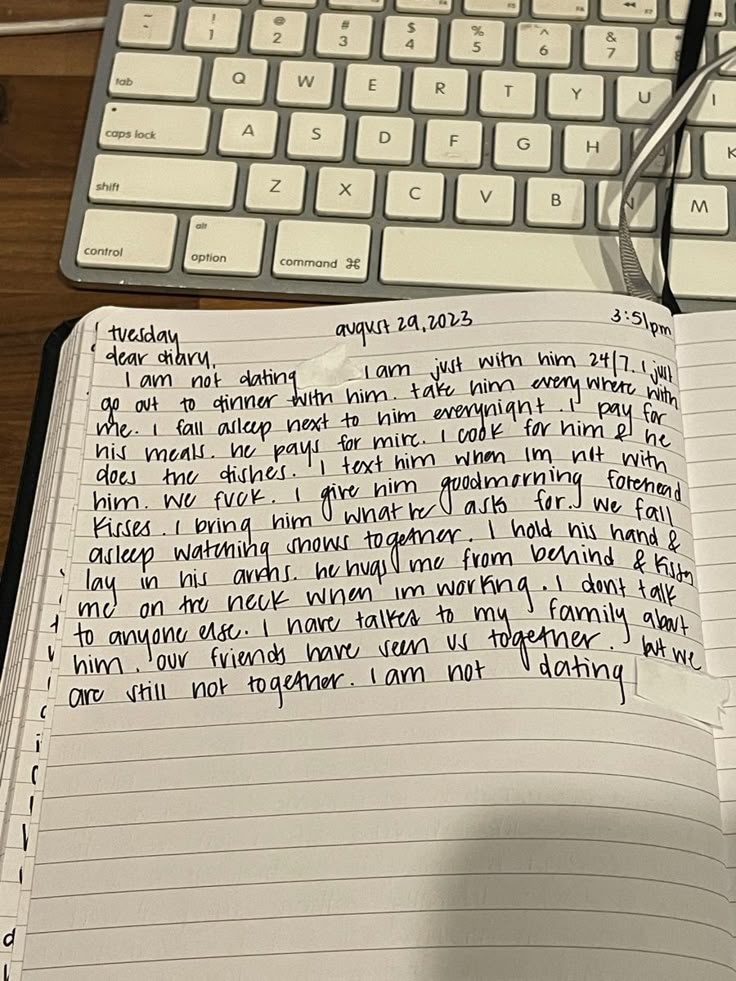 ~ ! @ # $ % ^ &
` 1 2 3 4 5 6 7
tab Q W E R T Y U I
caps lock A S D F G H K
shift Z X C V B N M
control alt option command ⌘
tuesday august 29, 2023 3:51pm
dear diary,
I am not dating I am just with him 24/7. I just
go out to dinner with him. take him everywhere with
me. I fall asleep next to him everynight. I pay for
his meals. he pays for mine. I cook for him & he
does the dishes. I text him when im not with
him. we fuck. I give him goodmorning forehead
kisses. I bring him what he asks for. we fall
asleep watching shows together. I hold his hand &
lay in his arms. he hugs me from behind & kisses
me on the neck when im working. I dont talk
to anyone else. I have talked to my family about
him. our friends have seen us together. but we
are still not together. I am not dating